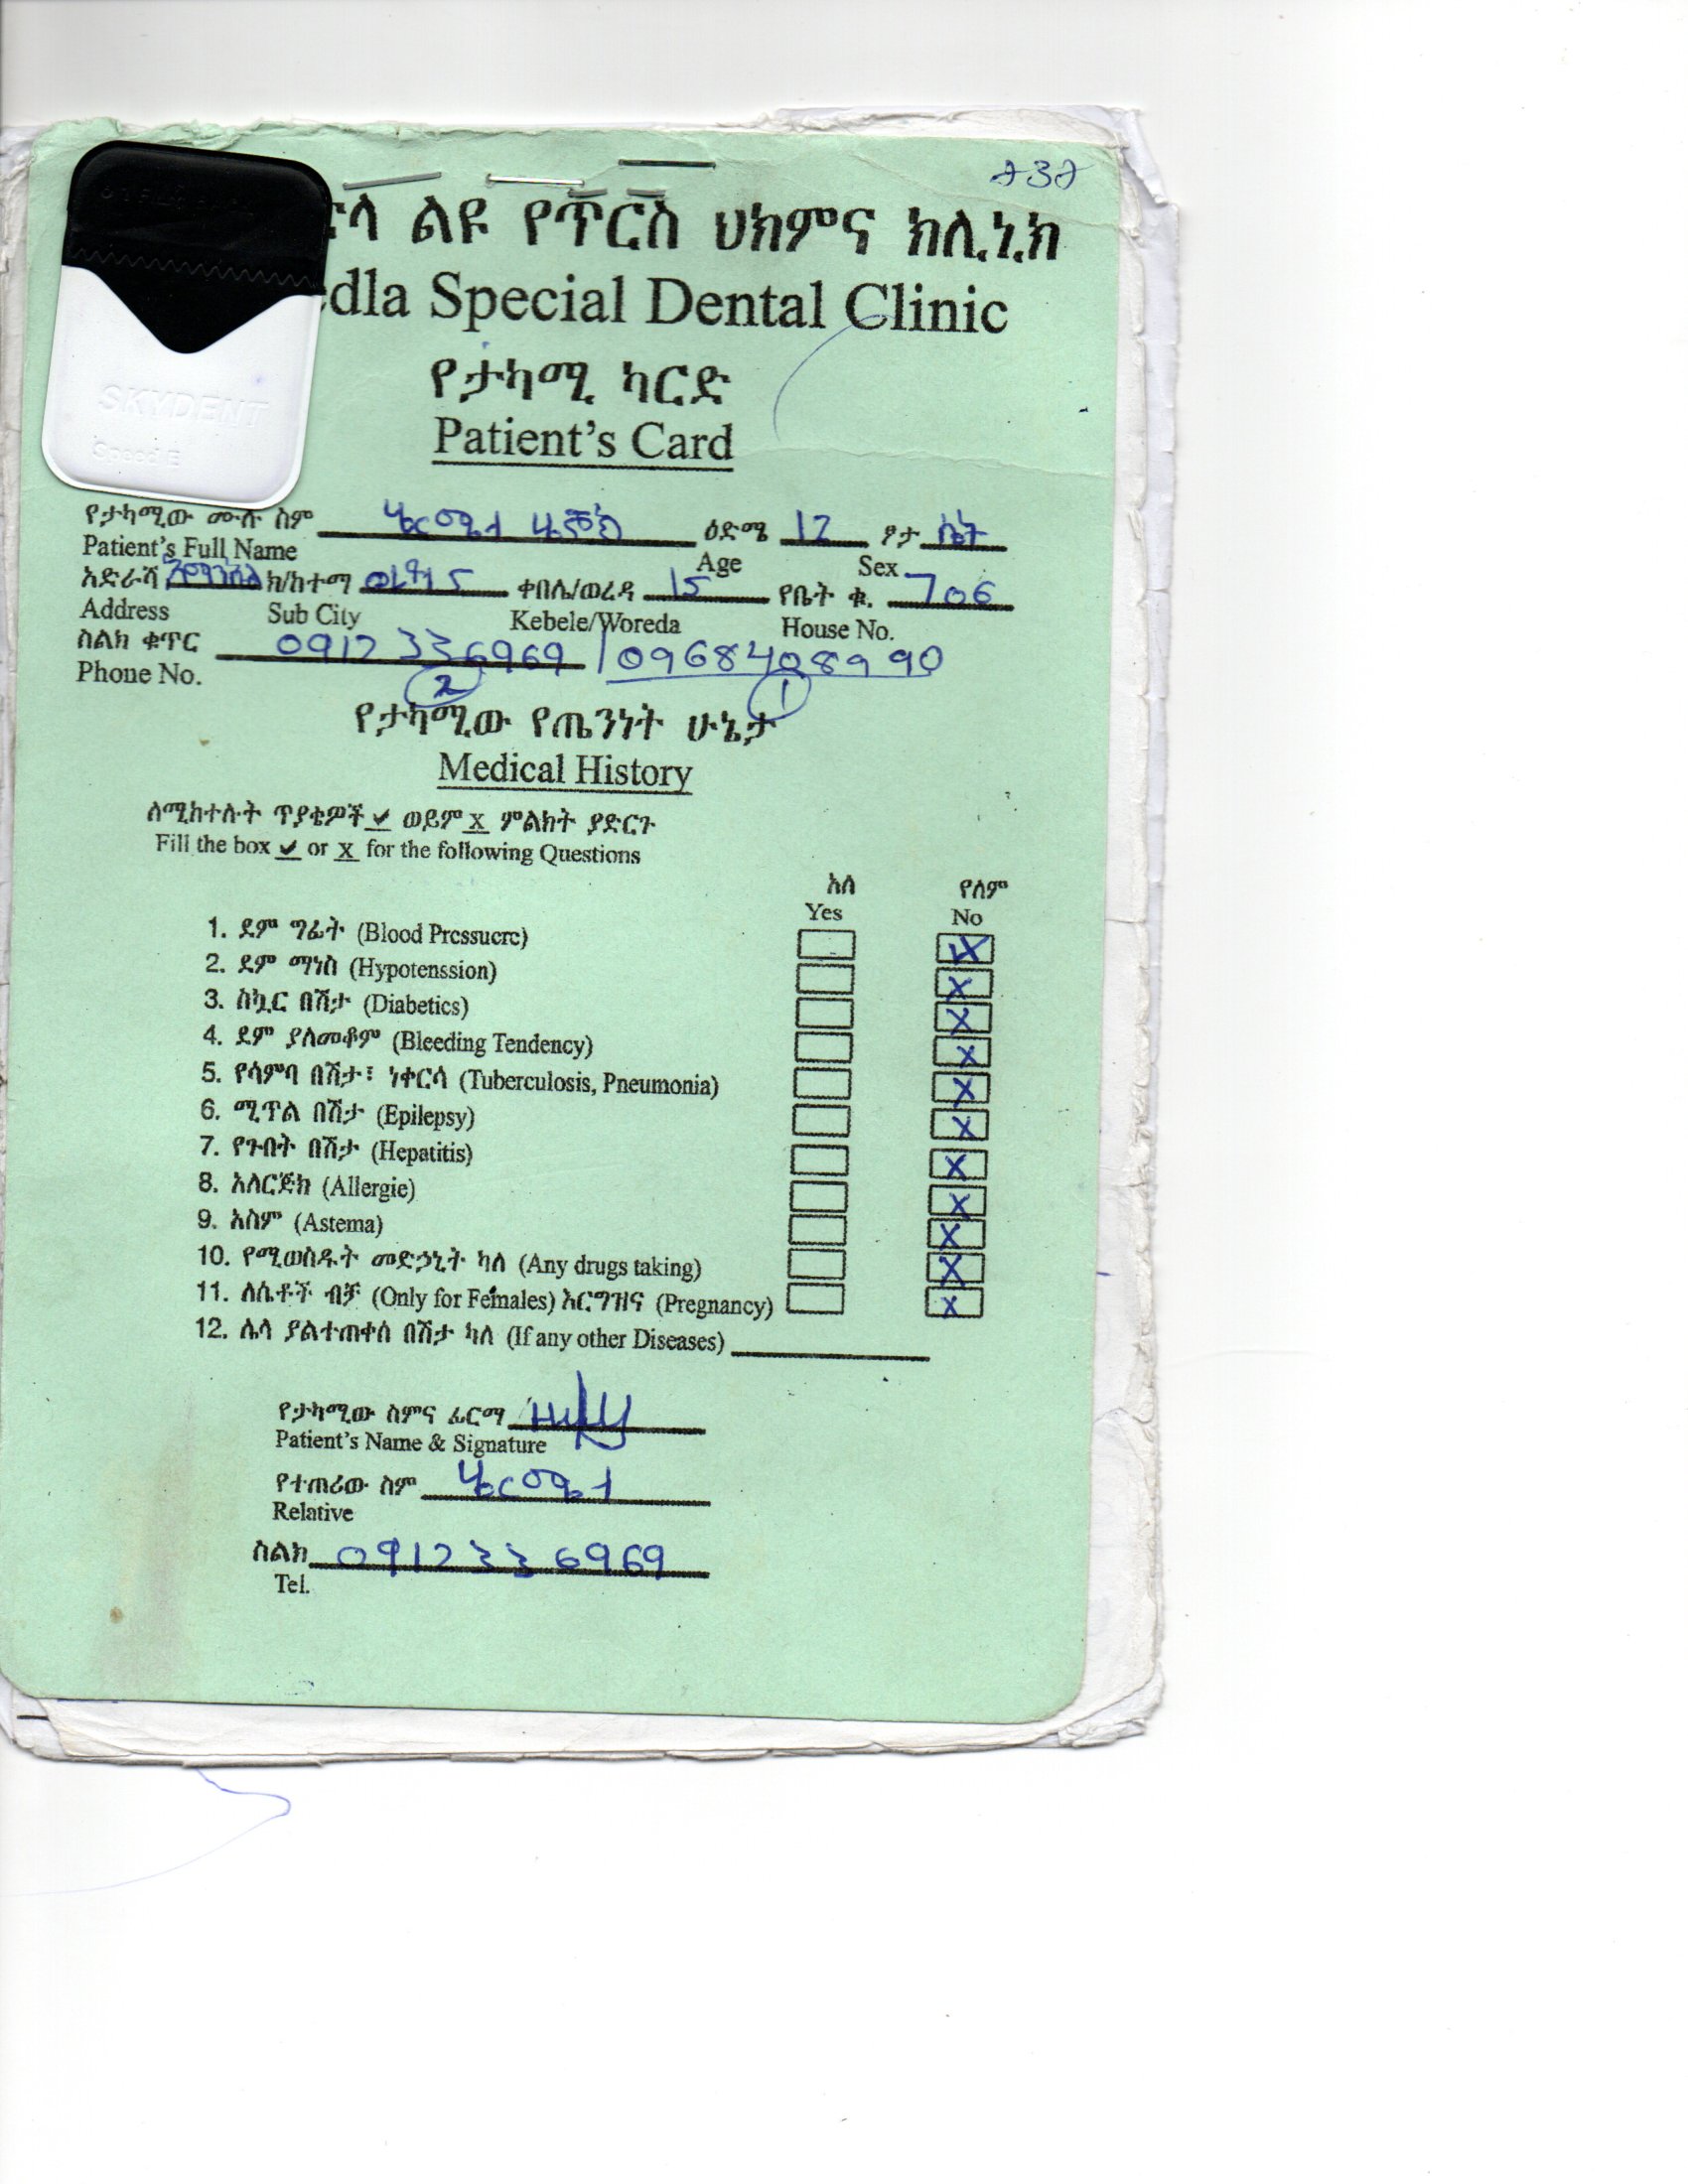 232
ልዩ የጥርስ ህክምና ክሊኒክ
edla Special Dental Clinic
SKYDENT
Speed E
የታካሚ ካርድ
Patient's Card
የታካሚው ሙሉ ስም ዕድሜ 12 ፆታ ሴት
Patient's Full Name Age Sex
አድራሻ ክ/ከተማ ቀበሌ/ወረዳ 15 የቤት ቁ. 706
Address Sub City Kebele/Woreda House No.
ስልክ ቁጥር 0912336969 / 0968408990
Phone No. 2 1
የታካሚው የጤንነት ሁኔታ
Medical History
ለሚከተሉት ጥያቄዎች ✓ ወይም X ምልክት ያድርጉ
Fill the box ✓ or X for the following Questions
አለ የለም
Yes No
1. ደም ግፊት (Blood Pressuere) X
2. ደም ማነስ (Hypotenssion) X
3. ስኳር በሽታ (Diabetics) X
4. ደም ያለመቆም (Bleeding Tendency) X
5. የሳምባ በሽታ፣ ነቀርሳ (Tuberculosis, Pneumonia) X
6. ሚጥል በሽታ (Epilepsy) X
7. የጉበት በሽታ (Hepatitis) X
8. አለርጅክ (Allergie) X
9. አስም (Astema) X
10. የሚወስዱት መድኃኒት ካለ (Any drugs taking) X
11. ለሴቶች ብቻ (Only for Females) እርግዝና (Pregnancy) X
12. ሌላ ያልተጠቀሰ በሽታ ካለ (If any other Diseases)
የታካሚው ስምና ፊርማ
Patient's Name & Signature
የተጠሪው ስም
Relative
ስልክ 0912336969
Tel.